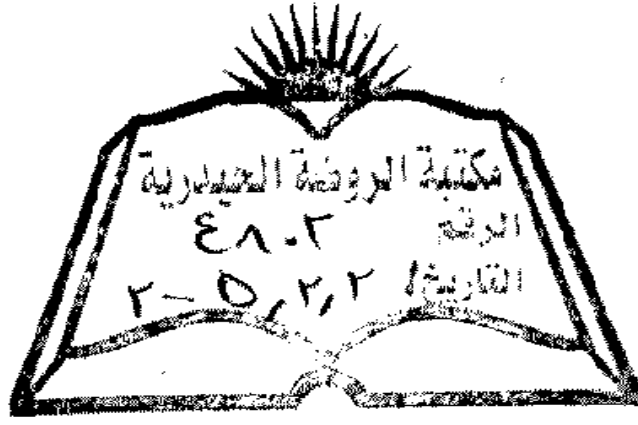 مكتبة الروضة الحيدرية
الرقم ٤٨٠٢
التاريخ / ٢٠٠٥,٢,٢